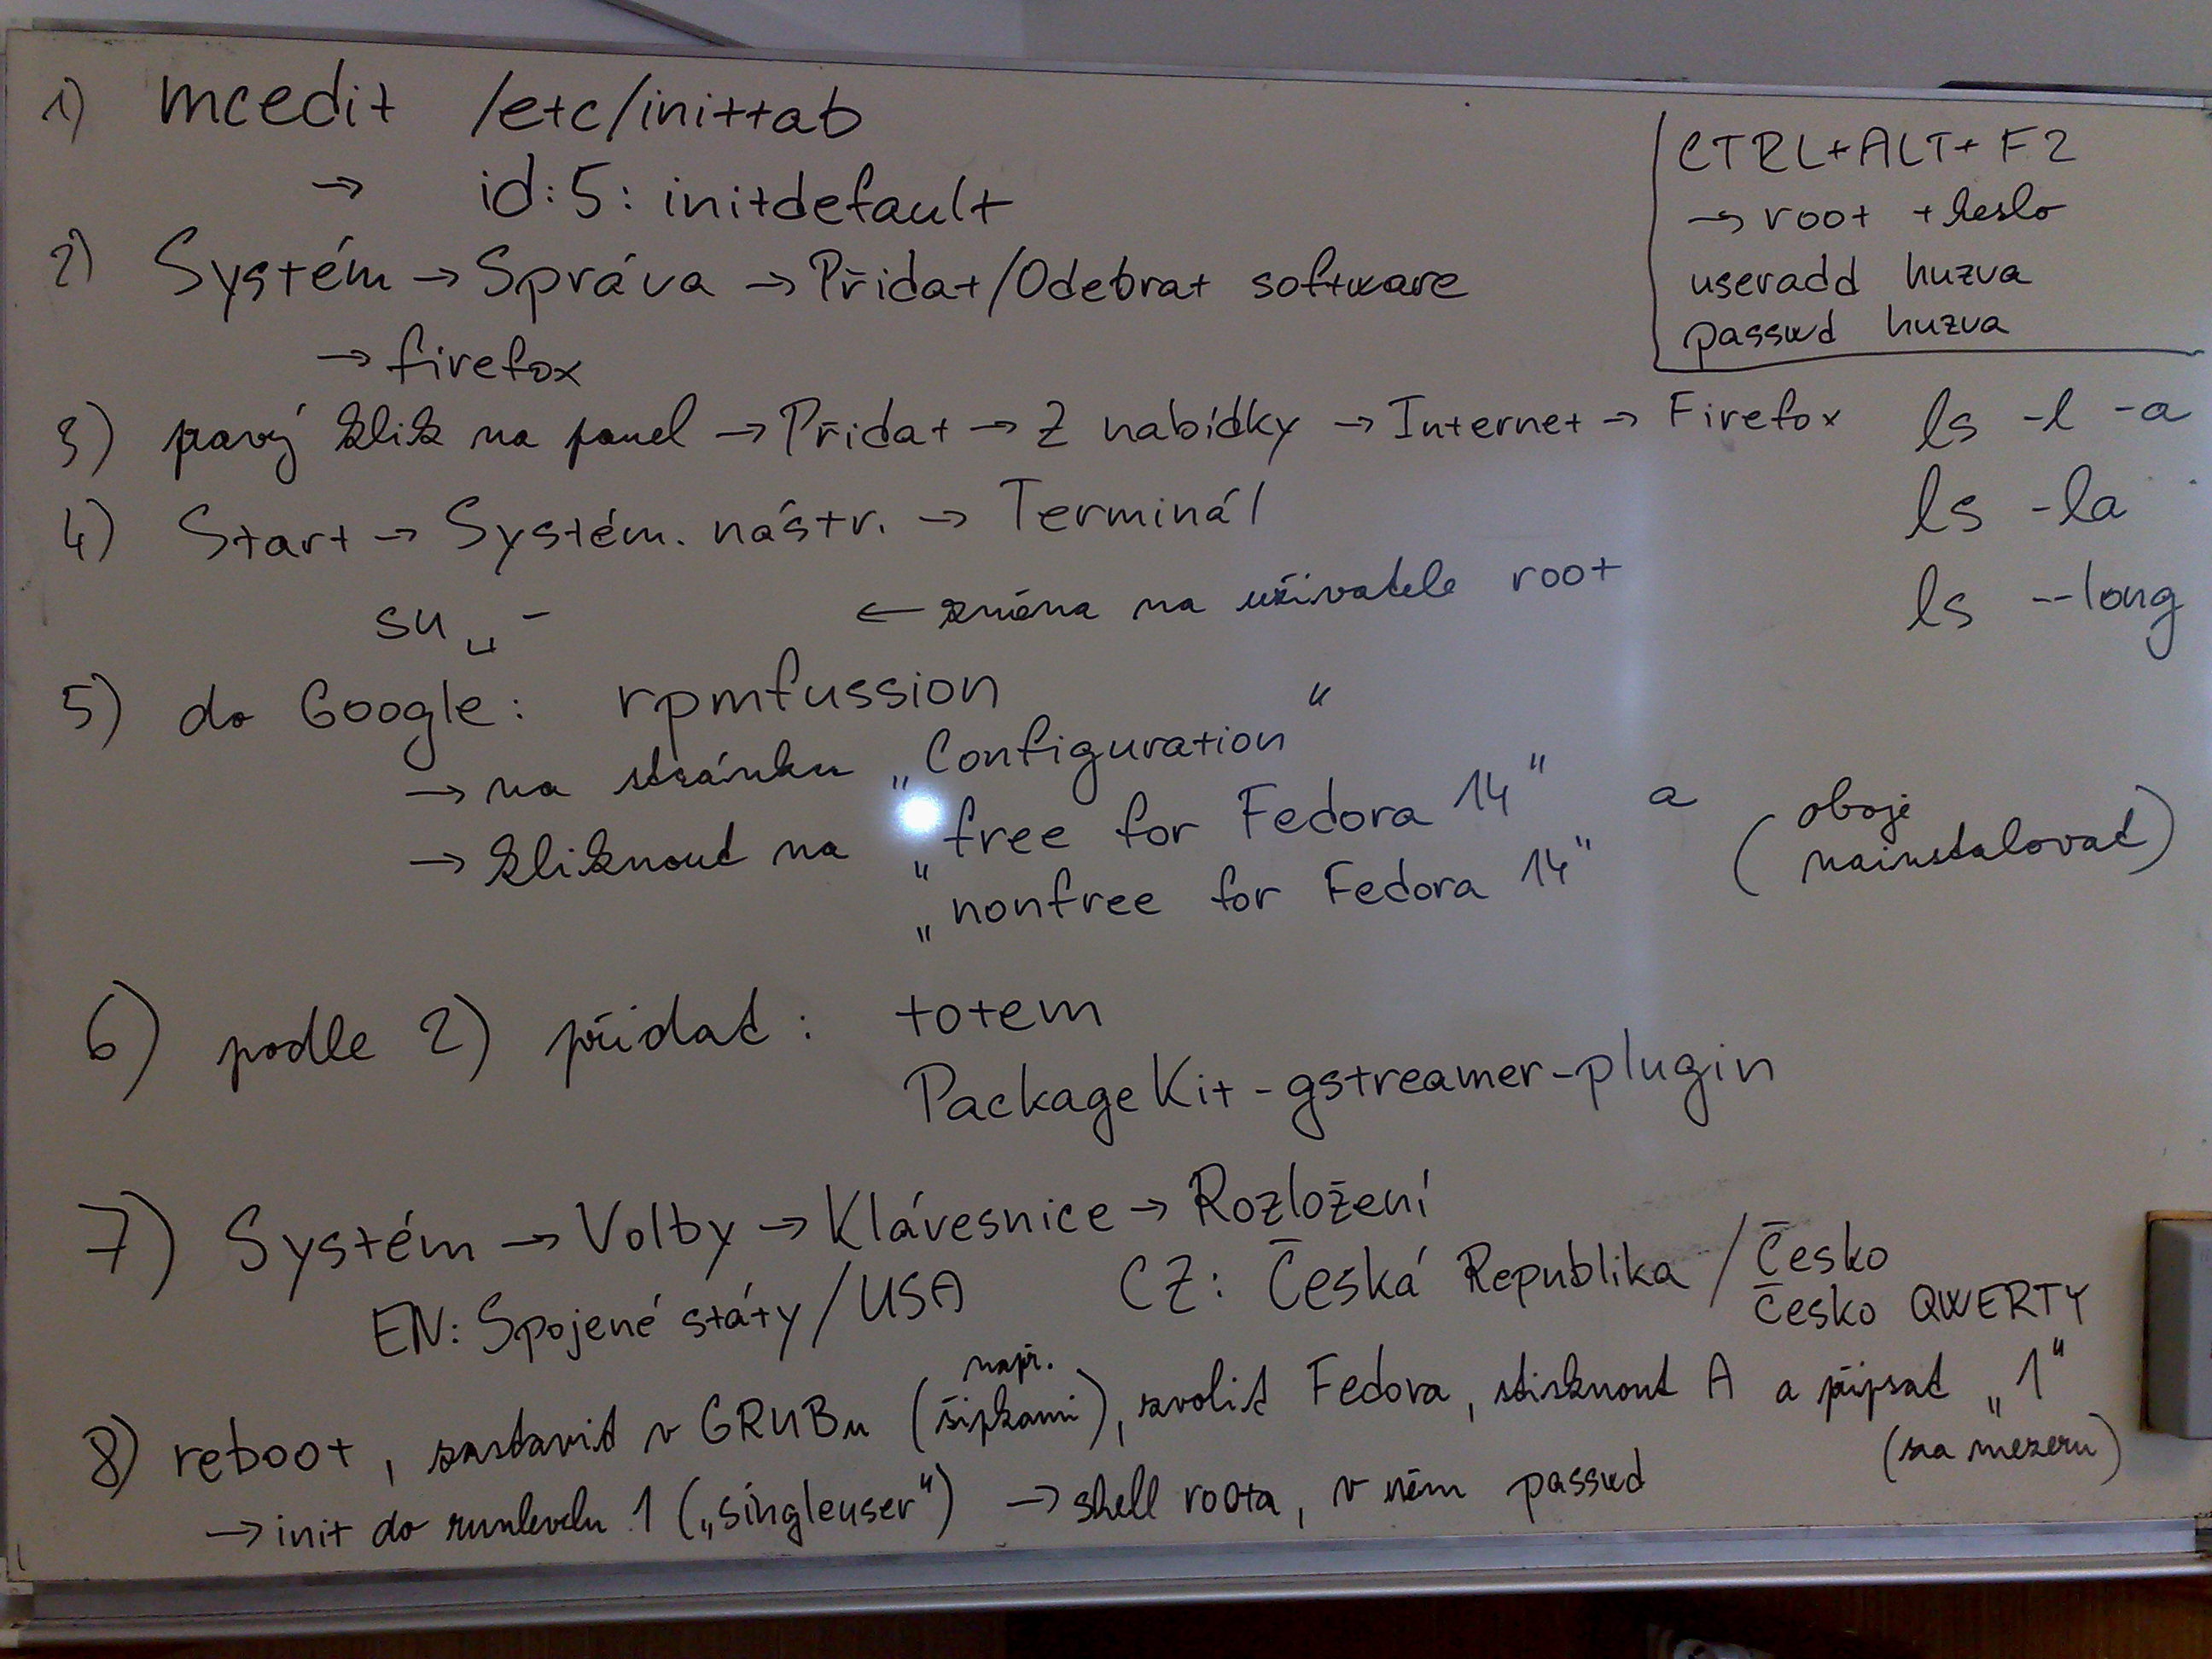 1) mcedit /etc/inittab
→ id:5:initdefault
2) Systém → Správa → Přidat/Odebrat software
→ firefox
3) pravý klik na panel → Přidat → Z nabídky → Internet → Firefox
4) Start → Systém. nástr. → Terminál
su ␣ - ← změna na uživatele root
5) do Google: rpmfussion
→ na stránku „Configuration"
→ kliknout na „free for Fedora 14" a
„nonfree for Fedora 14"
(oboje
nainstalovat)
6) podle 2) přidat: totem
PackageKit-gstreamer-plugin
7) Systém → Volby → Klávesnice → Rozložení
EN: Spojené státy/USA CZ: Česká Republika/Česko
Česko QWERTY
8) reboot, zastavit v GRUBu (např. šipkami), zvolit Fedora, stisknout A a připsat „1"
(za mezeru)
→ init do runlevelu 1 („singleuser") → shell roota, v něm passwd
CTRL+ALT+F2
→ root + heslo
useradd huzva
passwd huzva
ls -l -a
ls -la
ls --long